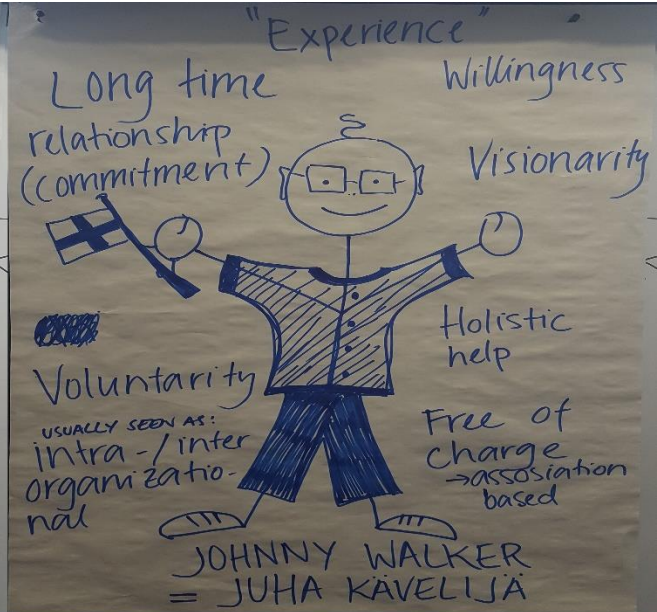 "Experience"
Long time
relationship
(commitment)
Willingness
Visionarity
Voluntarity
USUALLY SEEN AS:
intra-/inter
organizatio-
nal
Holistic
help
Free of
charge
→assosiation
based
JOHNNY WALKER
= JUHA KÄVELIJÄ